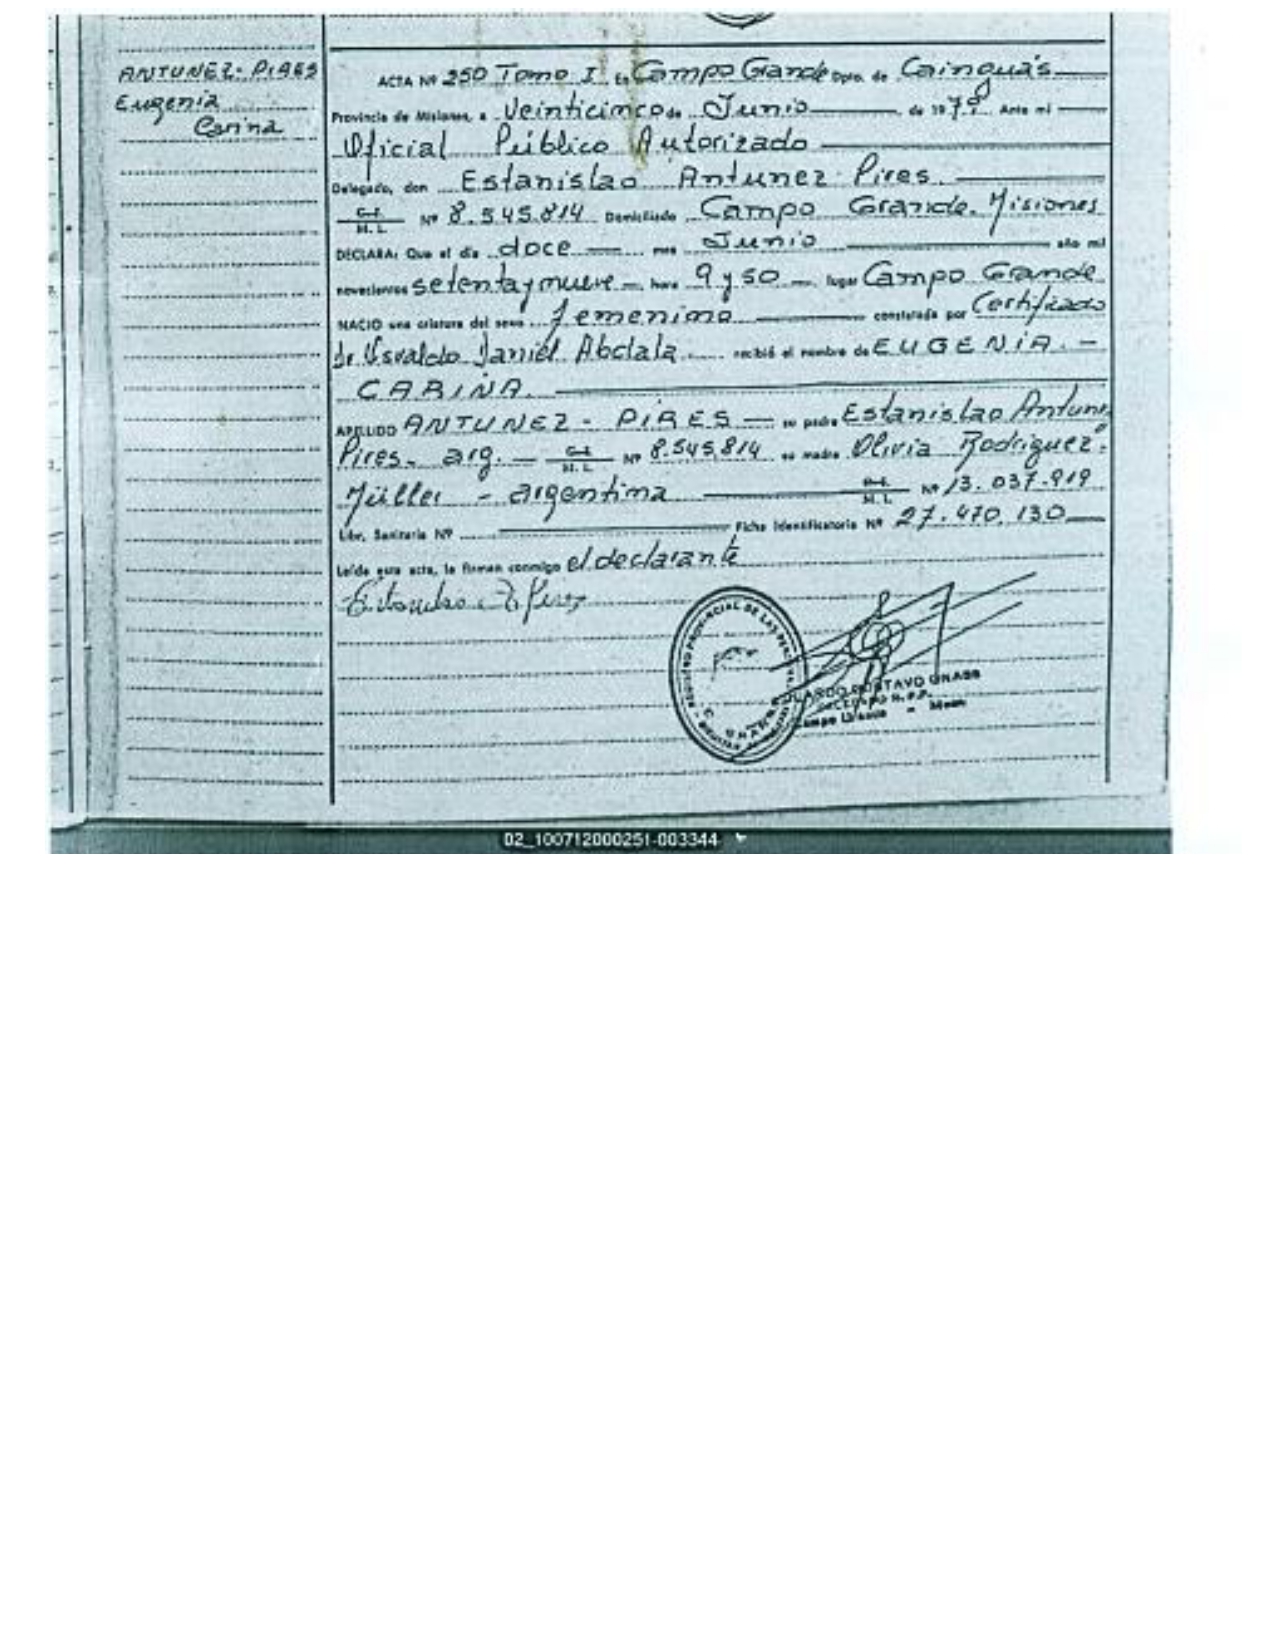 ANTUNEZ-PIRES
Eugenia
Carina
ACTA Nº 250 Tomo I En Campo Grande Dpto. de Cainguás
Provincia de Misiones, a Veinticinco de Junio de 1979 Ante mi
Oficial Público Autorizado
Delegado, don Estanislao Antunez Pires
C.I. M.I. Nº 8.545.814 Domiciliado Campo Grande. Misiones
DECLARA: Que el día doce mes Junio año mil
novecientos setenta y nueve hora 9 y 50 lugar Campo Grande
NACIO una criatura del sexo femenino constatada por Certificado
Dr Osvaldo Daniel Abdala recibió el nombre de EUGENIA -
CARINA
APELLIDO ANTUNEZ - PIRES su padre Estanislao Antunez
Pires - arg. C.I. M.I. Nº 8.545.814 su madre Olivia Rodriguez -
Müller - argentina C.I. M.I. Nº 13.037.919
Libr. Sanitaria Nº Ficha Identificatoria Nº 27.470.130
Leída esta acta, la firman conmigo el declarante
REGISTRO PROVINCIAL DE LAS
GUSTAVO GNASS
DELEGADO R.P.P.
Campo Grande - Mnes.
02_100712000251-003344